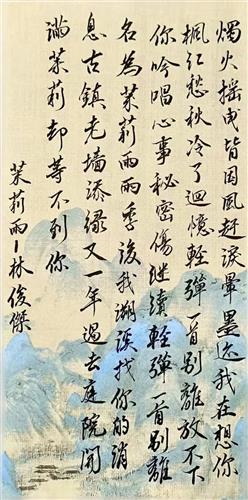 燭火搖曳皆因風起淚暈墨迹我在想你
楓红愁秋冷了迴憶輕彈一首别離放不下
你吟唱心事秘密傷继續輕彈一首别離
名為茉莉雨雨季後我溯溪找你的消
息古鎮老墙添緑又一年過去庭院開
滿茉莉却等不到你
茉莉雨－林俊傑